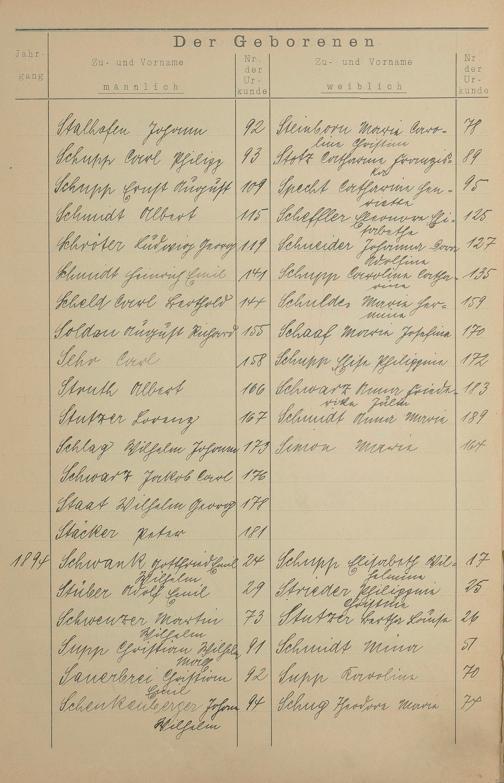 Der Geborenen
Jahr-
gang
Zu- und Vorname
männlich
Nr.
der
Ur-
kunde
Zu- und Vorname
weiblich
Nr
der
Ur-
kunde
Stalhofen Johann 92 Steinborn Maria Caro- 78
line Christine
Schupp Carl Philipp 93 Stotz Catharina Franzis- 89
ka
Schupp Ernst August 109 Specht Catharina Hen- 95
riette
Schmidt Albert 115 Scheffler Eleonora Eli- 125
sabetha
Schröter Ludwig Georg 119 Schneider Johanna 127
Adolfine
Schmidt Heinrich Emil 141 Schupp Caroline Catha- 135
rina
Scheld Carl Berthold 144 Schuldes Maria Her- 159
mine
Soldan August Richard 155 Schaaf Maria Josefine 170
Sehr Carl 158 Schupp Elise Philippine 172
Struth Albert 166 Schwarz Anna Friede- 183
rike Julie
Stutzer Lorenz 167 Schmidt Anna Maria 189
Schlag Wilhelm Johann 173 Simon Maria 164
Schwarz Jakob Carl 176
Staat Wilhelm Georg 178
Stäcker Peter 181
1894 Schwank Gottfried Emil 24 Schupp Elisabeth Wil- 17
Wilhelm helmine
Stüber Adolf Emil 29 Strieder Philippine 25
Christine
Schwenzer Martin 73 Stutzer Bertha Louise 26
Wilhelm
Supp Christian Wilhelm 91 Schmidt Mina 51
Max
Sauerbrei Christian 92 Supp Karoline 70
Emil
Schenkenberger Johann 94 Schug Theodore Maria 74
Wilhelm